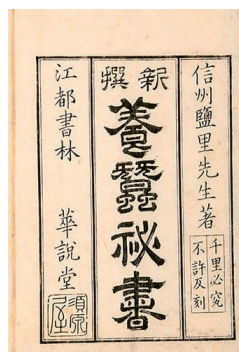 信州鹽里先生著
千里必究
不許反刻
新撰
養蠶祕書
江都書林 華說堂